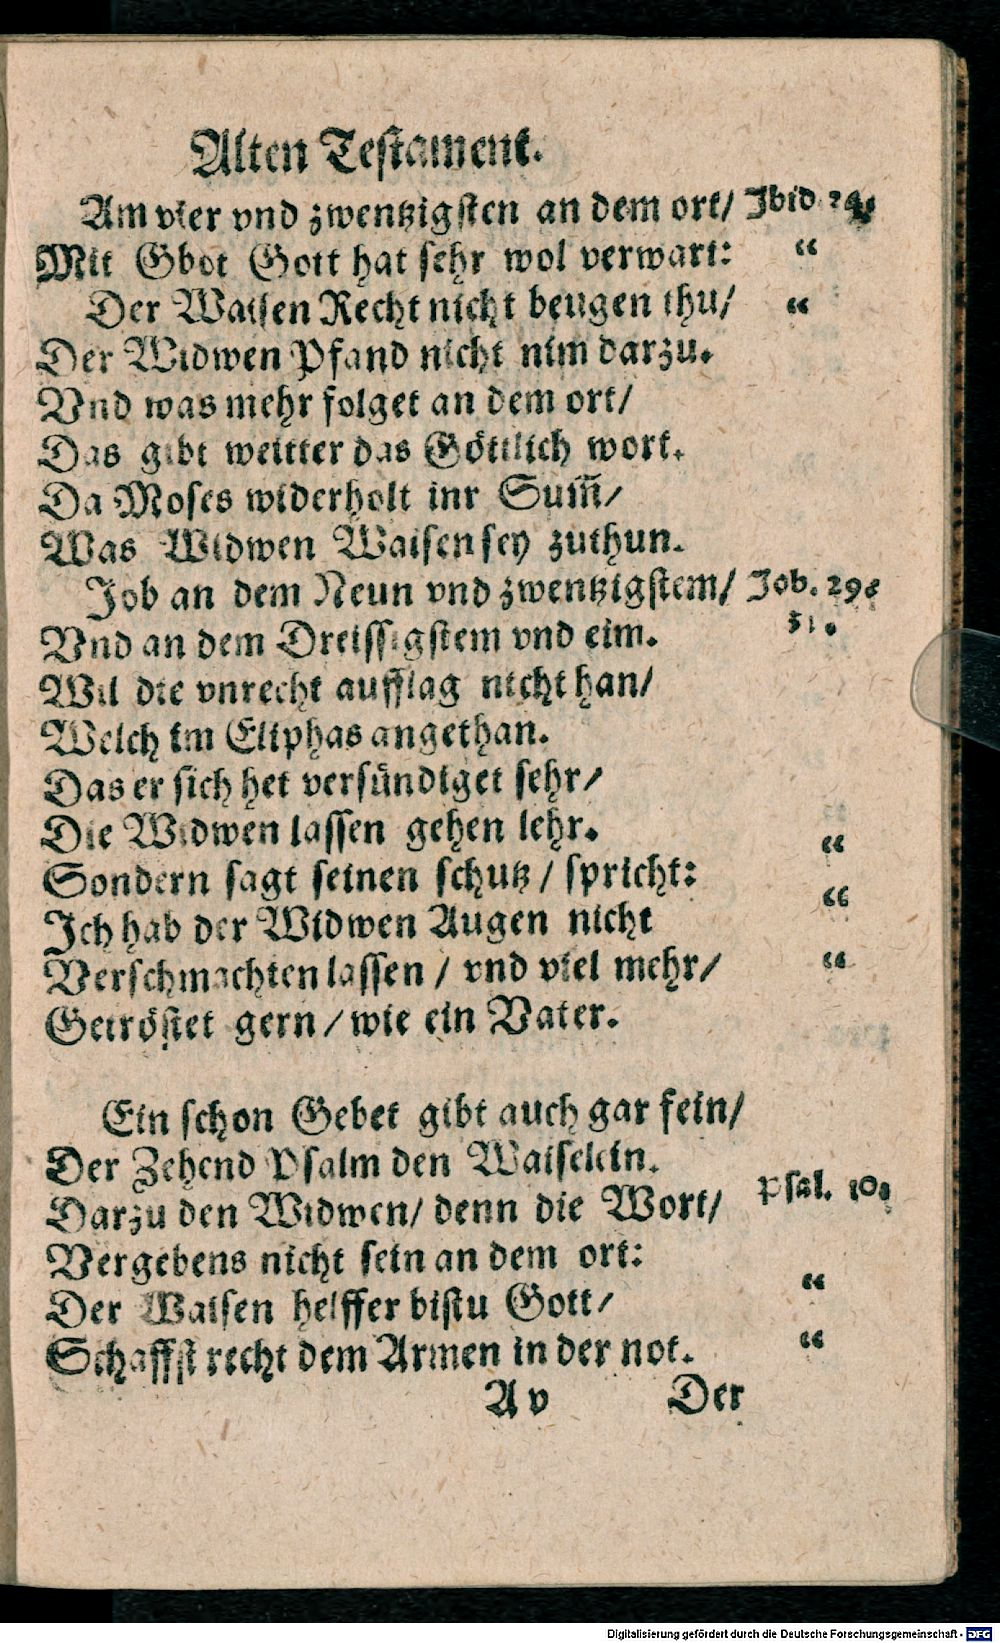 Alten Testament.
Am vier vnd zwentzigsten an dem ort/ Ibid 24.
Mit Gbot Gott hat sehr wol verwart: “
Der Waisen Recht nicht beugen thu/ “
Der Widwen Pfand nicht nim darzu.
Vnd was mehr folget an dem ort/
Das gibt weitter das Göttlich wort.
Da Moses widerholt inr Sum̃/
Was Widwen Waisen sey zuthun.
Job an dem Neun vnd zwentzigstem/ Job. 29.
Vnd an dem Dreissigstem vnd eim. 31.
Wil die vnrecht aufflag nicht han/
Welch im Eliphas angethan.
Das er sich het versündiget sehr/
Die Widwen lassen gehen lehr. “
Sondern sagt seinen schutz / spricht:
Ich hab der Widwen Augen nicht “
Verschmachten lassen / vnd viel mehr/ “
Getröstet gern / wie ein Vater.
Ein schon Gebet gibt auch gar fein/
Der Zehend Psalm den Waiselein.
Darzu den Widwen/ denn die Wort/ Psal. 10.
Vergebens nicht sein an dem ort:
Der Waisen helffer bistu Gott/ “
Schaffst recht dem Armen in der not. “
A v Der
Digitalisierung gefördert durch die Deutsche Forschungsgemeinschaft - DFG